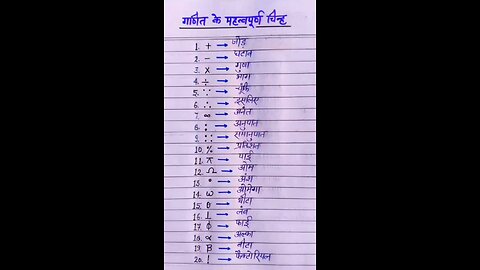 गणित के महत्वपूर्ण चिन्ह
1. + → जोड़
2. − → घटाव
3. × → गुणा
4. ÷ → भाग
5. ∵ → चूँकि
6. ∴ → इसलिए
7. ∞ → अनंत
8. : → अनुपात
9. :: → समानुपात
10. % → प्रतिशत
11. π → पाई
12. Ω → ओम
13. ° → अंश
14. ω → ओमेगा
15. θ → थीटा
16. ⊥ → लंब
17. ϕ → फाई
18. α → अल्फा
19. β → बीटा
20. ! → फैक्टोरियल